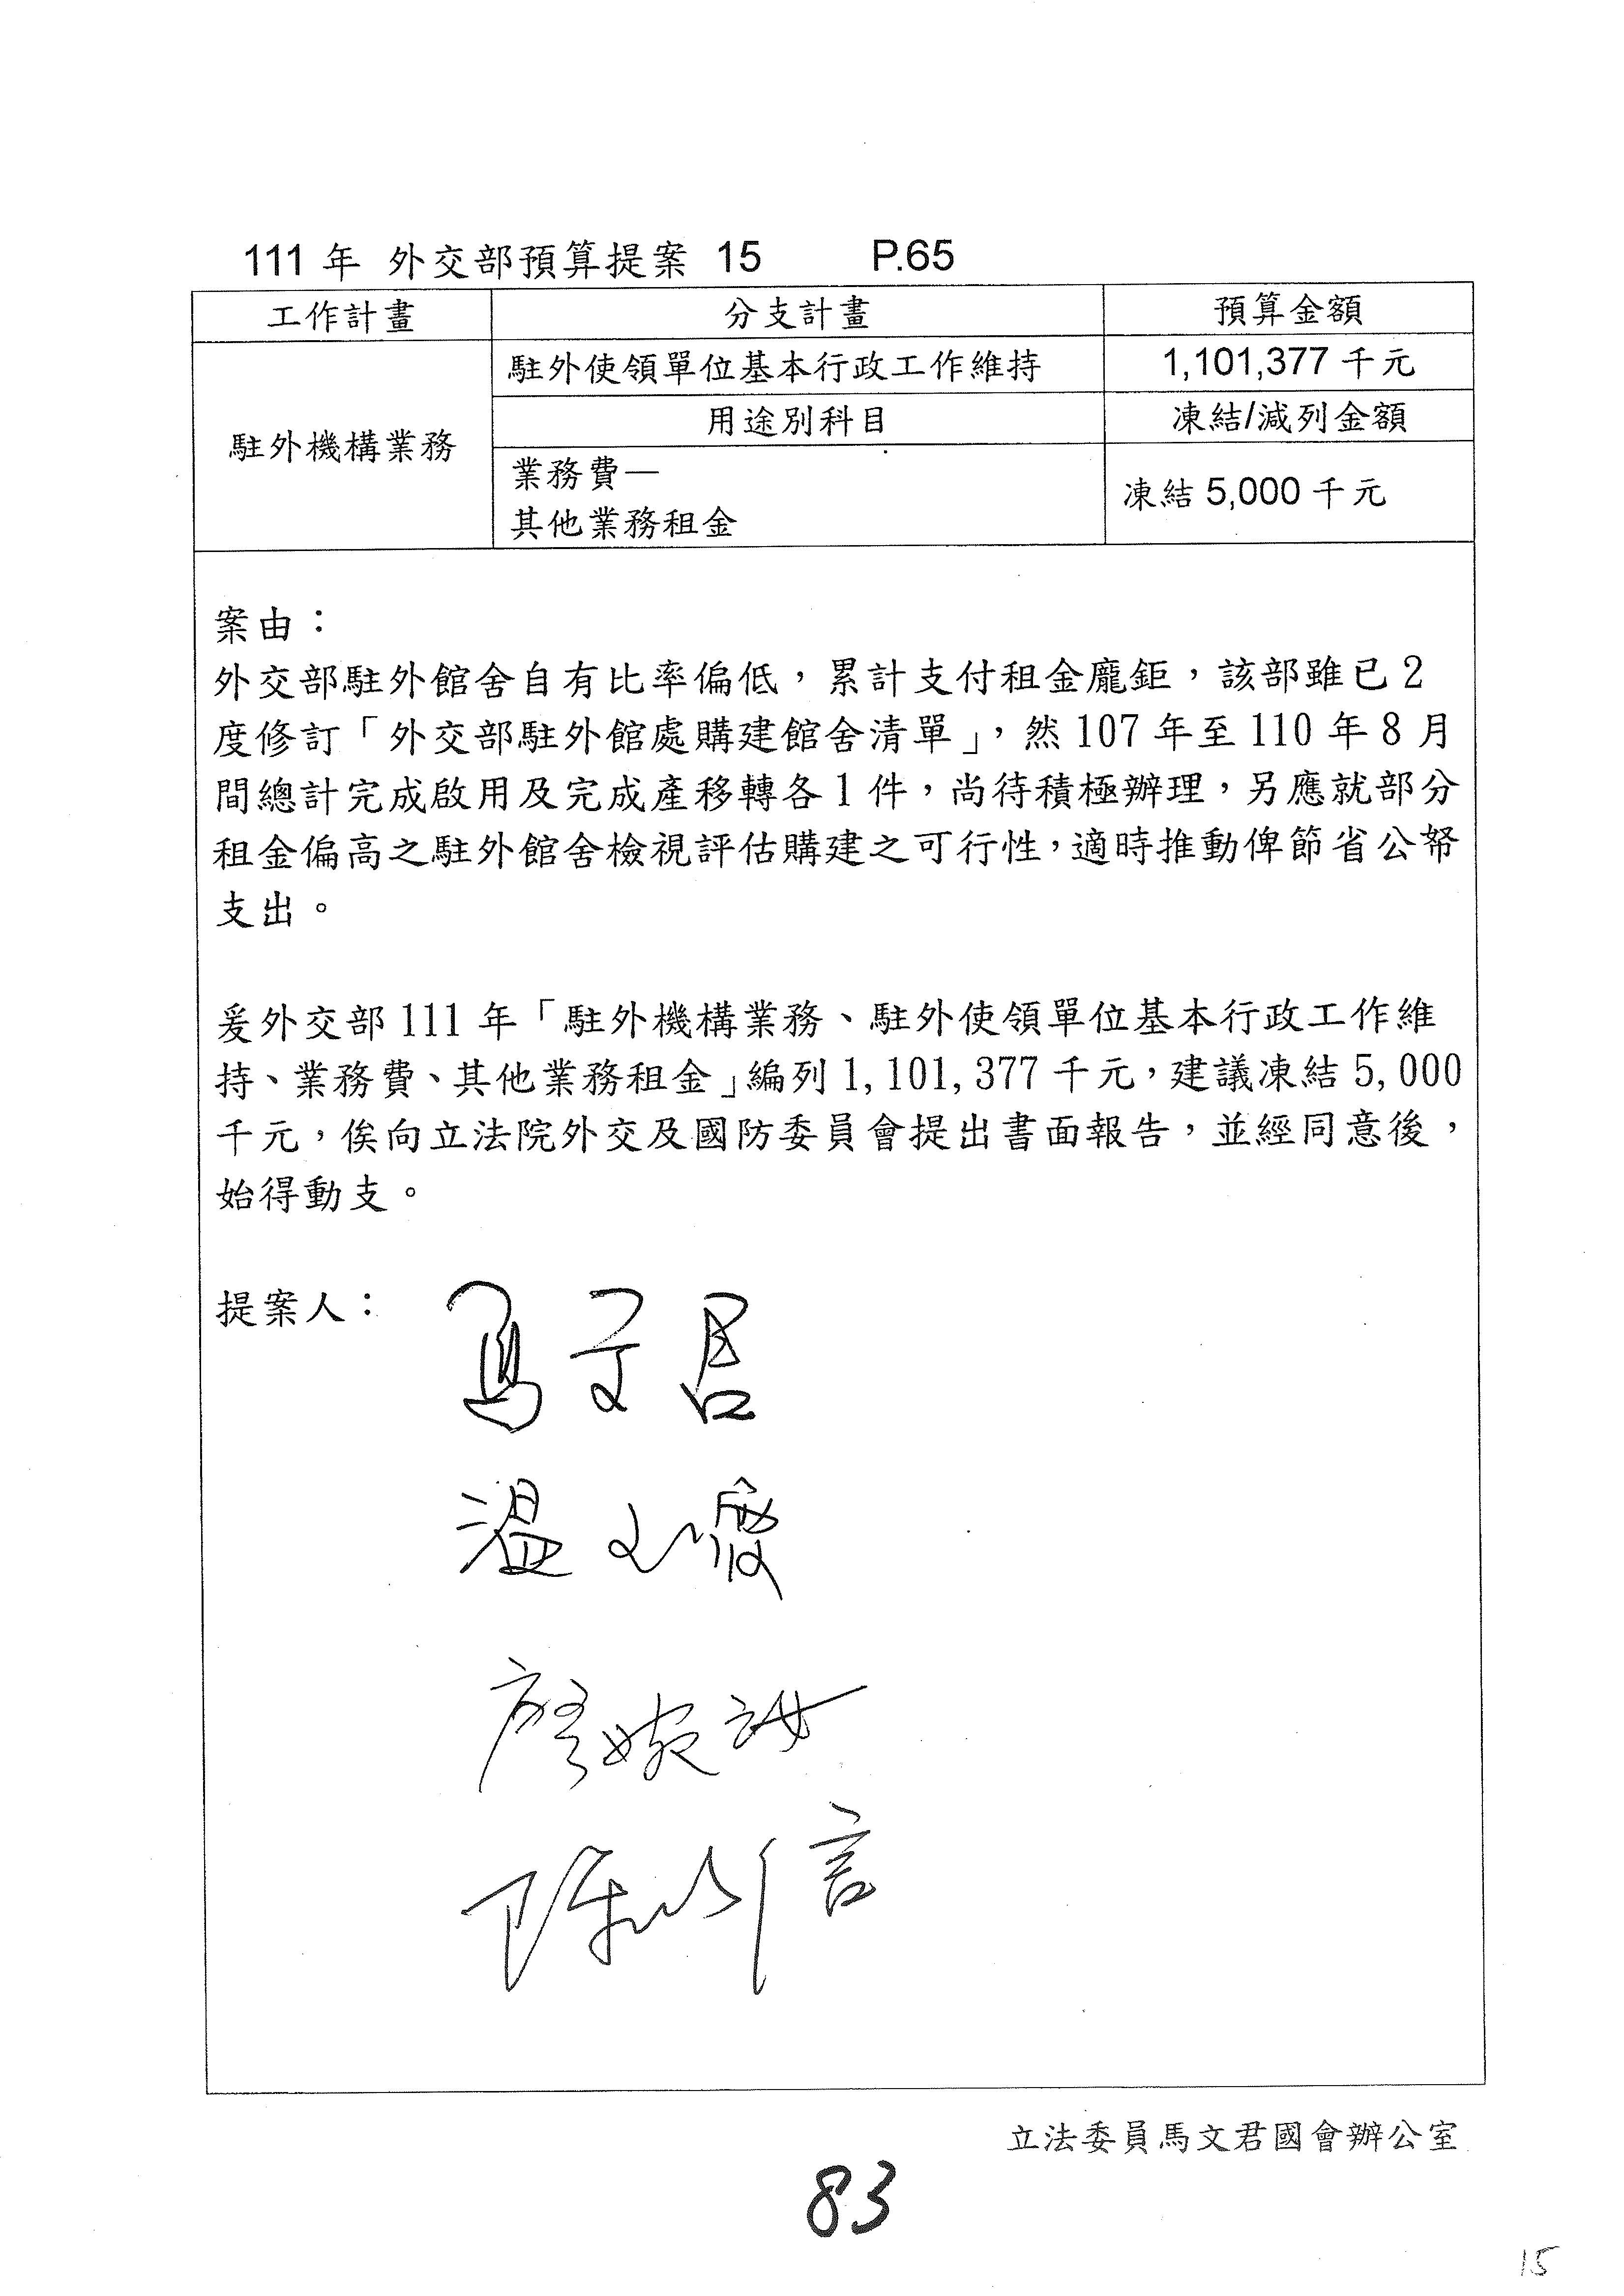 111 年 外交部預算提案 15 P.65
工作計畫 分支計畫 預算金額
駐外機構業務
駐外使領單位基本行政工作維持 1,101,377 千元
用途別科目 凍結/減列金額
業務費—
其他業務租金
凍結 5,000 千元
案由：
外交部駐外館舍自有比率偏低，累計支付租金龐鉅，該部雖已 2
度修訂「外交部駐外館處購建館舍清單」，然 107 年至 110 年 8 月
間總計完成啟用及完成產移轉各 1 件，尚待積極辦理，另應就部分
租金偏高之駐外館舍檢視評估購建之可行性，適時推動俾節省公帑
支出。
爰外交部 111 年「駐外機構業務、駐外使領單位基本行政工作維
持、業務費、其他業務租金」編列 1,101,377 千元，建議凍結 5,000
千元，俟向立法院外交及國防委員會提出書面報告，並經同意後，
始得動支。
提案人：
馬文君
溫玉霞
廖婉汝
陳以信
立法委員馬文君國會辦公室
83
15